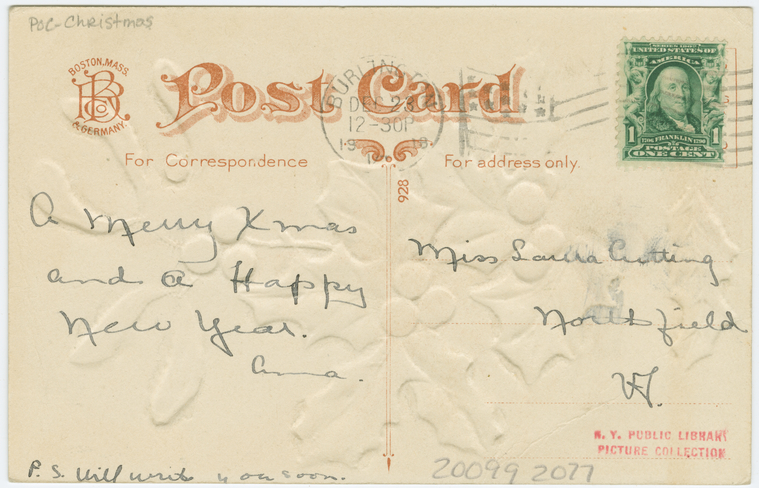 POC-Christmas
BOSTON, MASS.
B CO
& GERMANY.
Post Card
DEC 23
12-30P
SERIES 1902
UNITED STATES OF
AMERICA
1 1706 FRANKLIN 1790 1
POSTAGE
ONE CENT
For Correspondence
For address only.
928
A Merry Xmas
and a Happy
New Year.
Anna.
P.S. Will write you soon.
Miss Laura Cutting
Northfield
Vt.
N. Y. PUBLIC LIBRARY
PICTURE COLLECTION
20099 2077